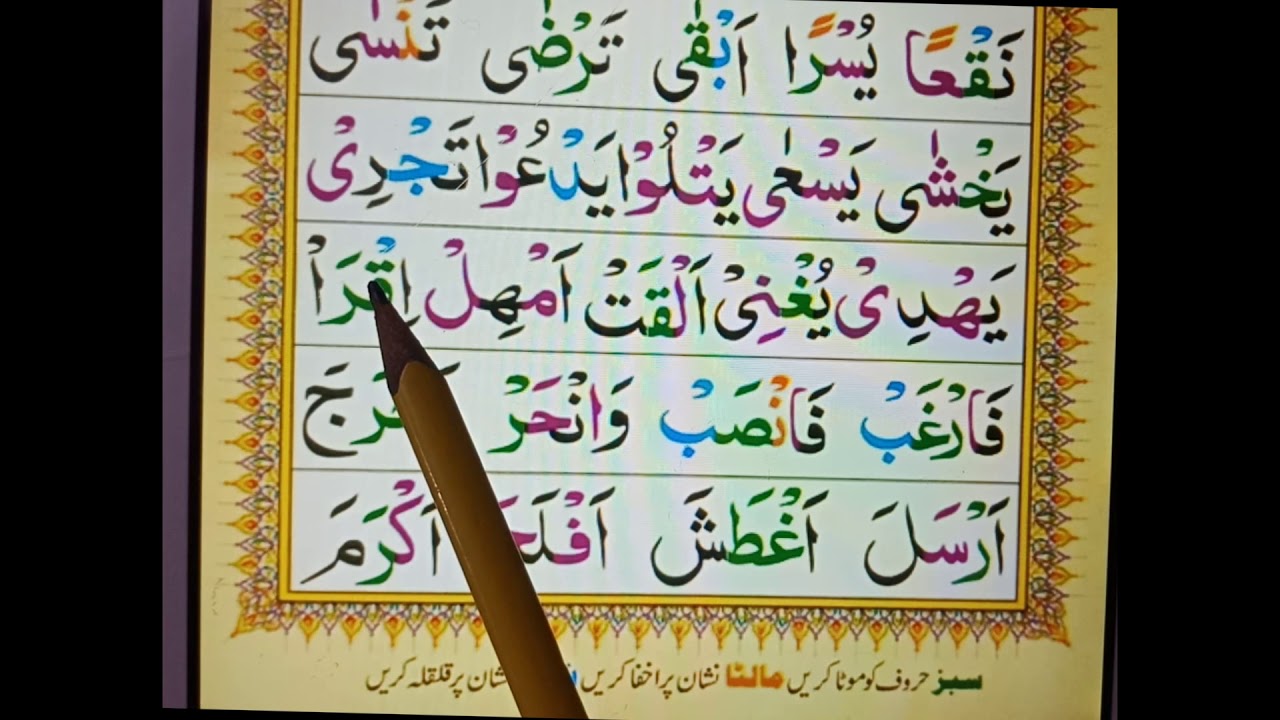 نَقْعًا یُسْرًا اَبْقٰی تَرْضٰی تَنْسٰی
یَخْشٰی یَسْعٰی یَتْلُوْا یَدْعُوْا تَجْرِیْ
یَهْدِیْ یُغْنِیْ اَلْقَتْ اَمْهِلْ اِقْرَاْ
فَارْغَبْ فَانْصَبْ وَانْحَرْ
اَرْسَلَ اَغْطَشَ اَفْلَحَ اَكْرَمَ
سبز حروف کو موٹا کریں مالٹا نشان پر اخفا کریں نشان پر قلقلہ کریں